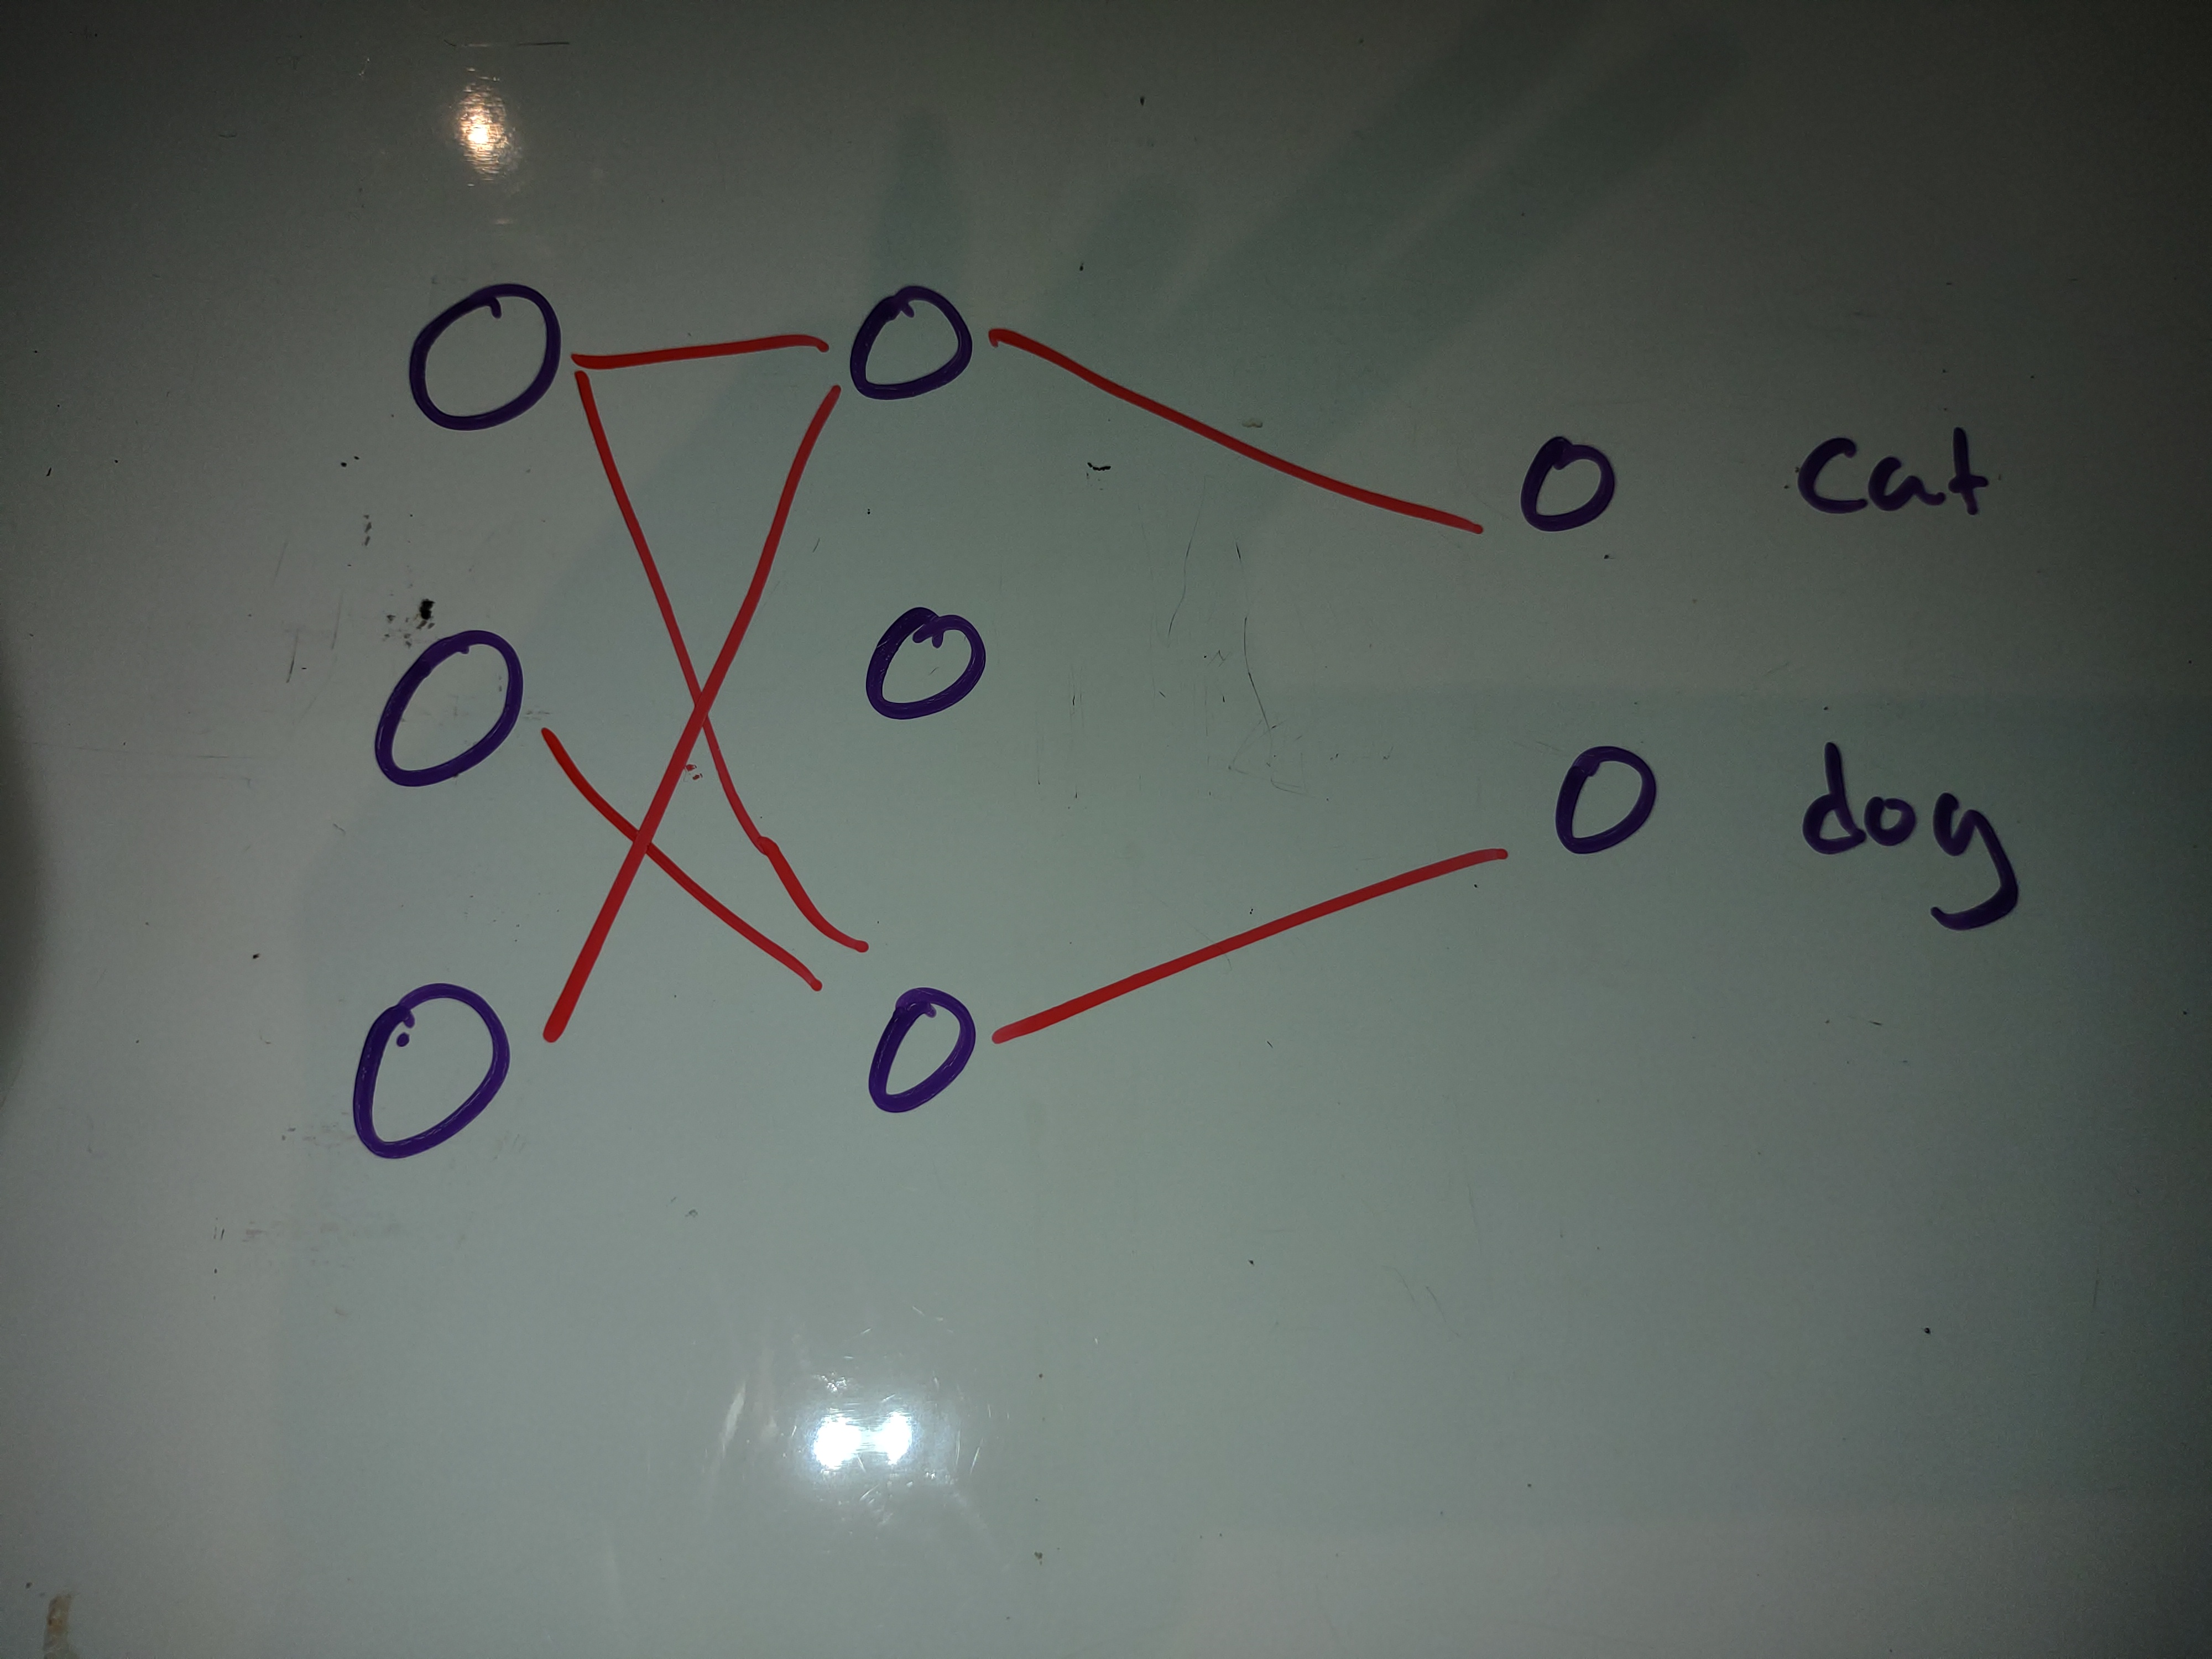 cat
dog